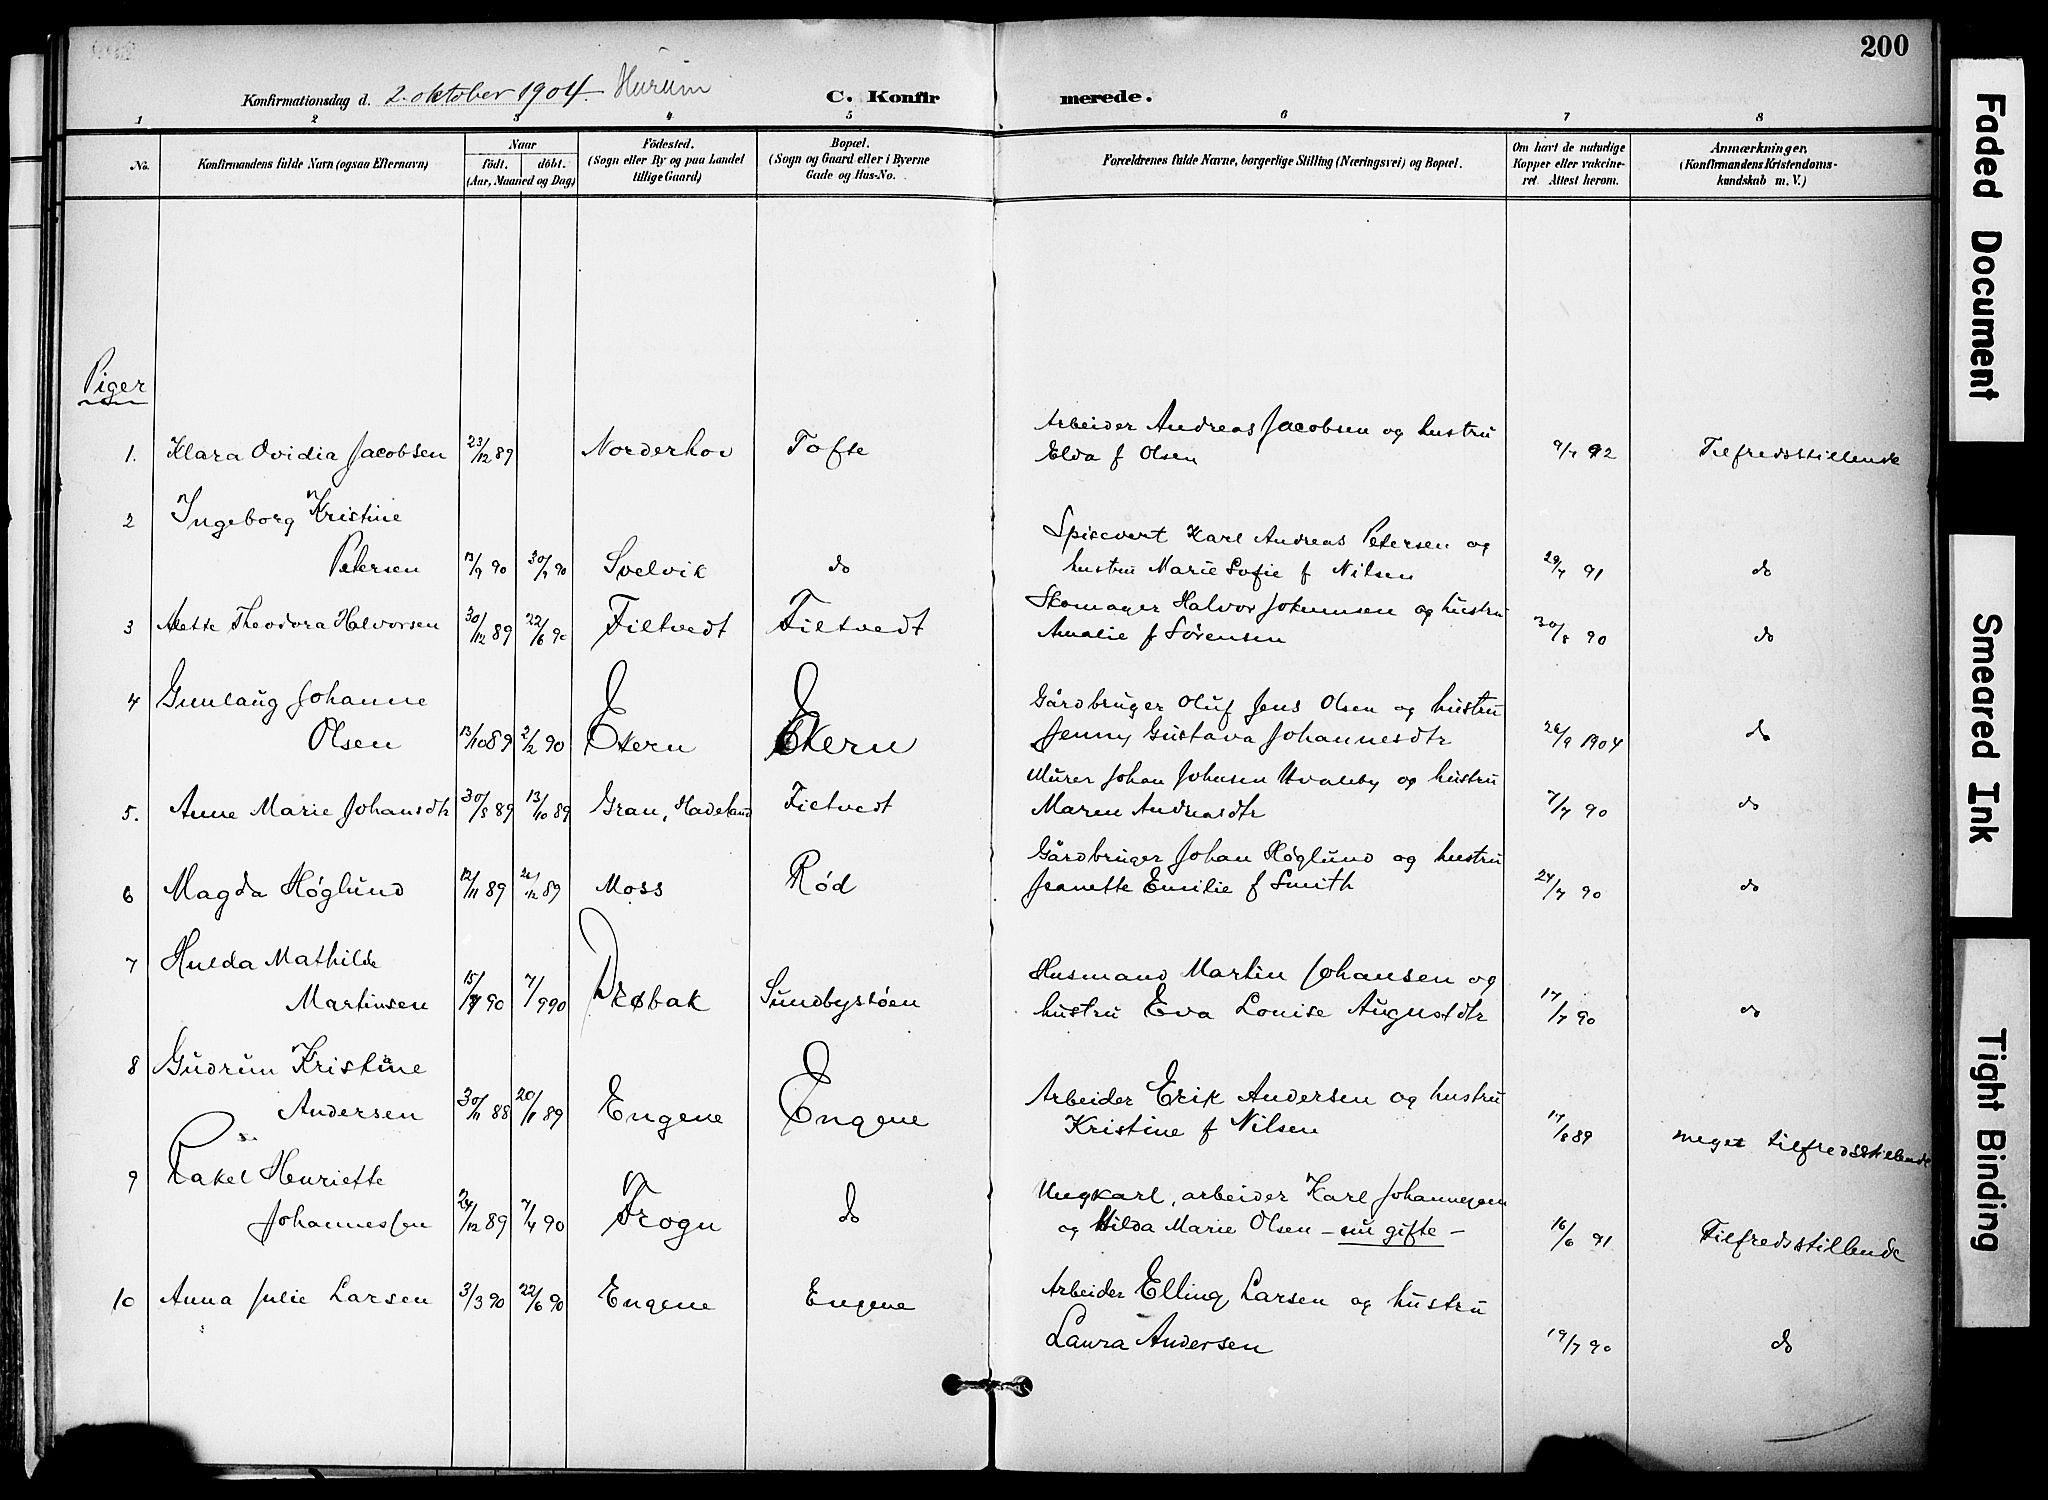 200
Konfirmationsdag d. 2. oktober 1904. Hurum
C. Konfirmerede.
1 2 3 4 5 6 7 8
No.
Konfirmandens fulde Navn (ogsaa Efternavn)
Naar
født. døbt.
(Aar, Maaned og Dag)
Fødested.
(Sogn eller By og paa Landet
tillige Gaard)
Bopæl.
(Sogn og Gaard eller i Byerne
Gade og Hus-No.
Forældrenes fulde Navne, borgerlige Stilling (Næringsvei) og Bopæl.
Om havt de naturlige
Kopper eller vakcine-
ret. Attest herom.
Anmærkninger.
(Konfirmandens Kristendoms-
kundskab m. V.)
Piger
Arbeider Andreas Jacobsen og hustru
1. Klara Ovidia Jacobsen 23/12 89 Norderhov Tofte Elva f Olsen 9/7 92 Tilfredsstillende
2 Ingeborg Kristine
Spisevert Karl Andreas Petersen og
Petersen 13/9 90 30/9 90 Svelvik do hustru Marie Sofie f Nilsen 29/7 91 do
Skomager Halvor Johannsen og hustru
3 Aletta Theodora Halvorsen 30/12 89 22/6 90 Filtvedt Filtvedt Amalie f Sørensen 30/8 90 do
4 Gunlaug Johanne
Gårdbruger Oluf Jens Olsen og hustru
Olsen 13/10 89 2/2 90 Ekern Ekern Jenny Gustava Johannesdtr 26/9 1904 do
Murer Johan Johnsen Hvaleby og hustru
5. Anne Marie Johansdtr 30/8 89 13/10 89 Gran, Hadeland Filtvedt Maren Andreasdtr 7/7 90 do
Gårdbruger Johan Høglund og hustru
6 Magda Høglund 12/11 89 26/12 89 Moss Rød Jeanette Emilie f Smith 24/7 90 do
7 Hulda Mathilde
Husmand Martin Johansen og
Martinsen 15/7 90 7/9 90 Drøbak Sundbystøen hustru Eva Louise Augustdtr 17/7 90 do
8 Gudrun Kristine
Arbeider Erik Andersen og hustru
Andersen 30/11 88 20/1 89 Engene Engene Kristine f Nilsen 17/8 89 meget tilfredsstillende
9 Rakel Henriette
Ungkarl, arbeider Karl Johannesen
Johannessen 24/12 89 7/4 90 Frogn do og Hilda Marie Olsen – nu gifte – 16/6 91 Tilfredsstillende
10 Anna Julie Larsen 3/3 90 22/6 90 Engene Engene Arbeider Elling Larsen og hustru
Laura Andersen 19/7 90 do
Faded Document
Smeared Ink
Tight Binding